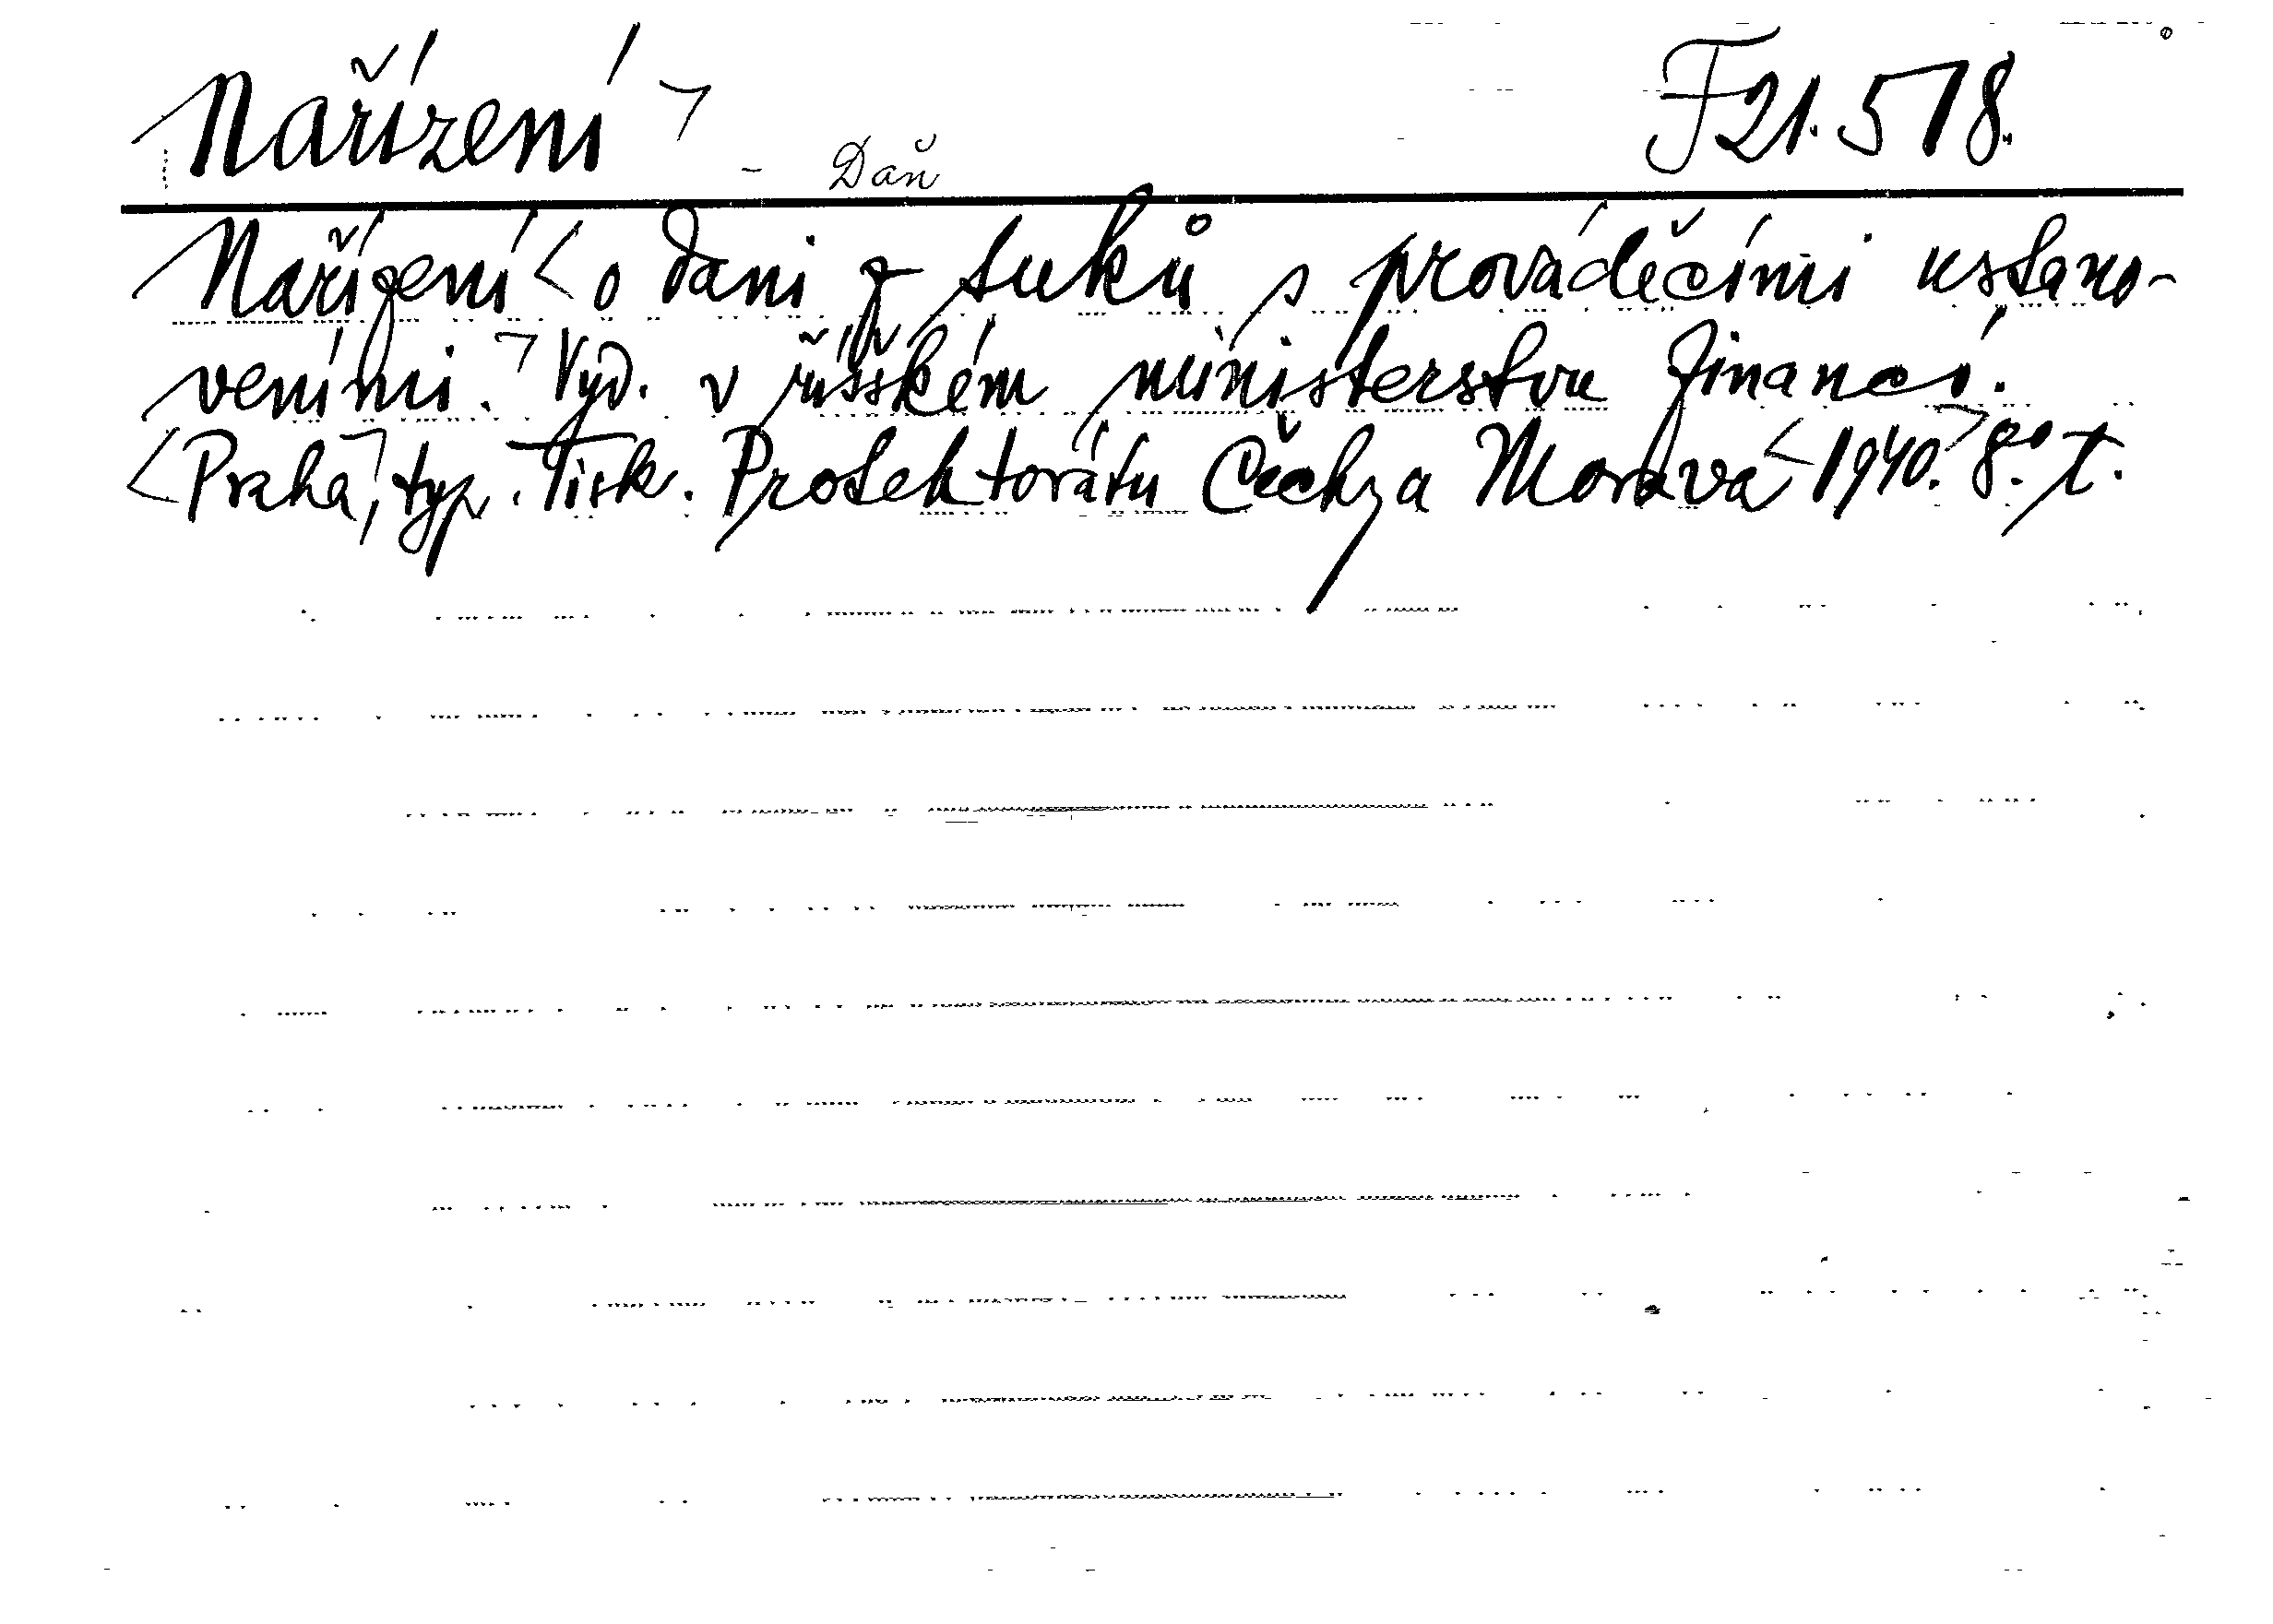 Nařízení ¬ - Daň F 21.578.
Nařízení < o dani z tuků s prováděcími ustano-
veními. ¬ Vyd. v říšském ministerstvu financí.
< Praha ¬, typ. Tisk. Protektorátu Čechy a Morava < 1940. ¬ 8.° t.